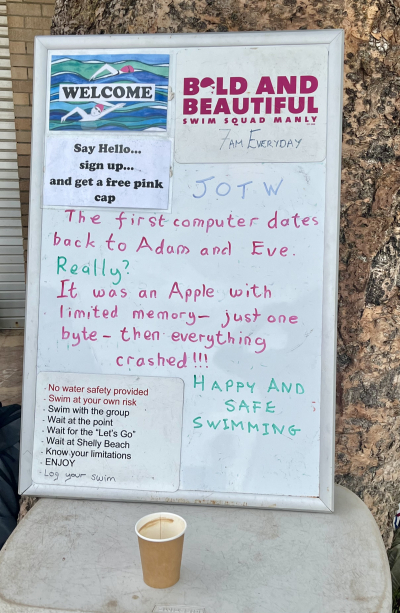 WELCOME
Say Hello...
sign up...
and get a free pink
cap
BOLD AND
BEAUTIFUL
SWIM SQUAD MANLY
7AM EVERYDAY
JOTW
The first computer dates
back to Adam and Eve.
Really?
It was an Apple with
limited memory - just one
byte - then everything
crashed!!!
- No water safety provided
- Swim at your own risk
- Swim with the group
- Wait at the point
- Wait for the "Let's Go"
- Wait at Shelly Beach
- Know your limitations
- ENJOY
- Log your swim
HAPPY AND
SAFE
SWIMMING